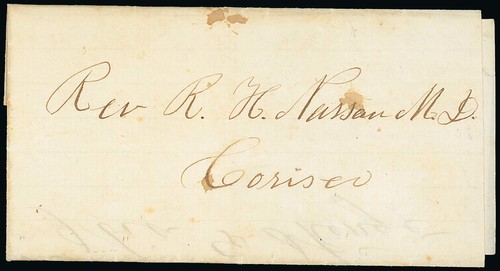 Rev R. H. Nassau M.D.
Corisco